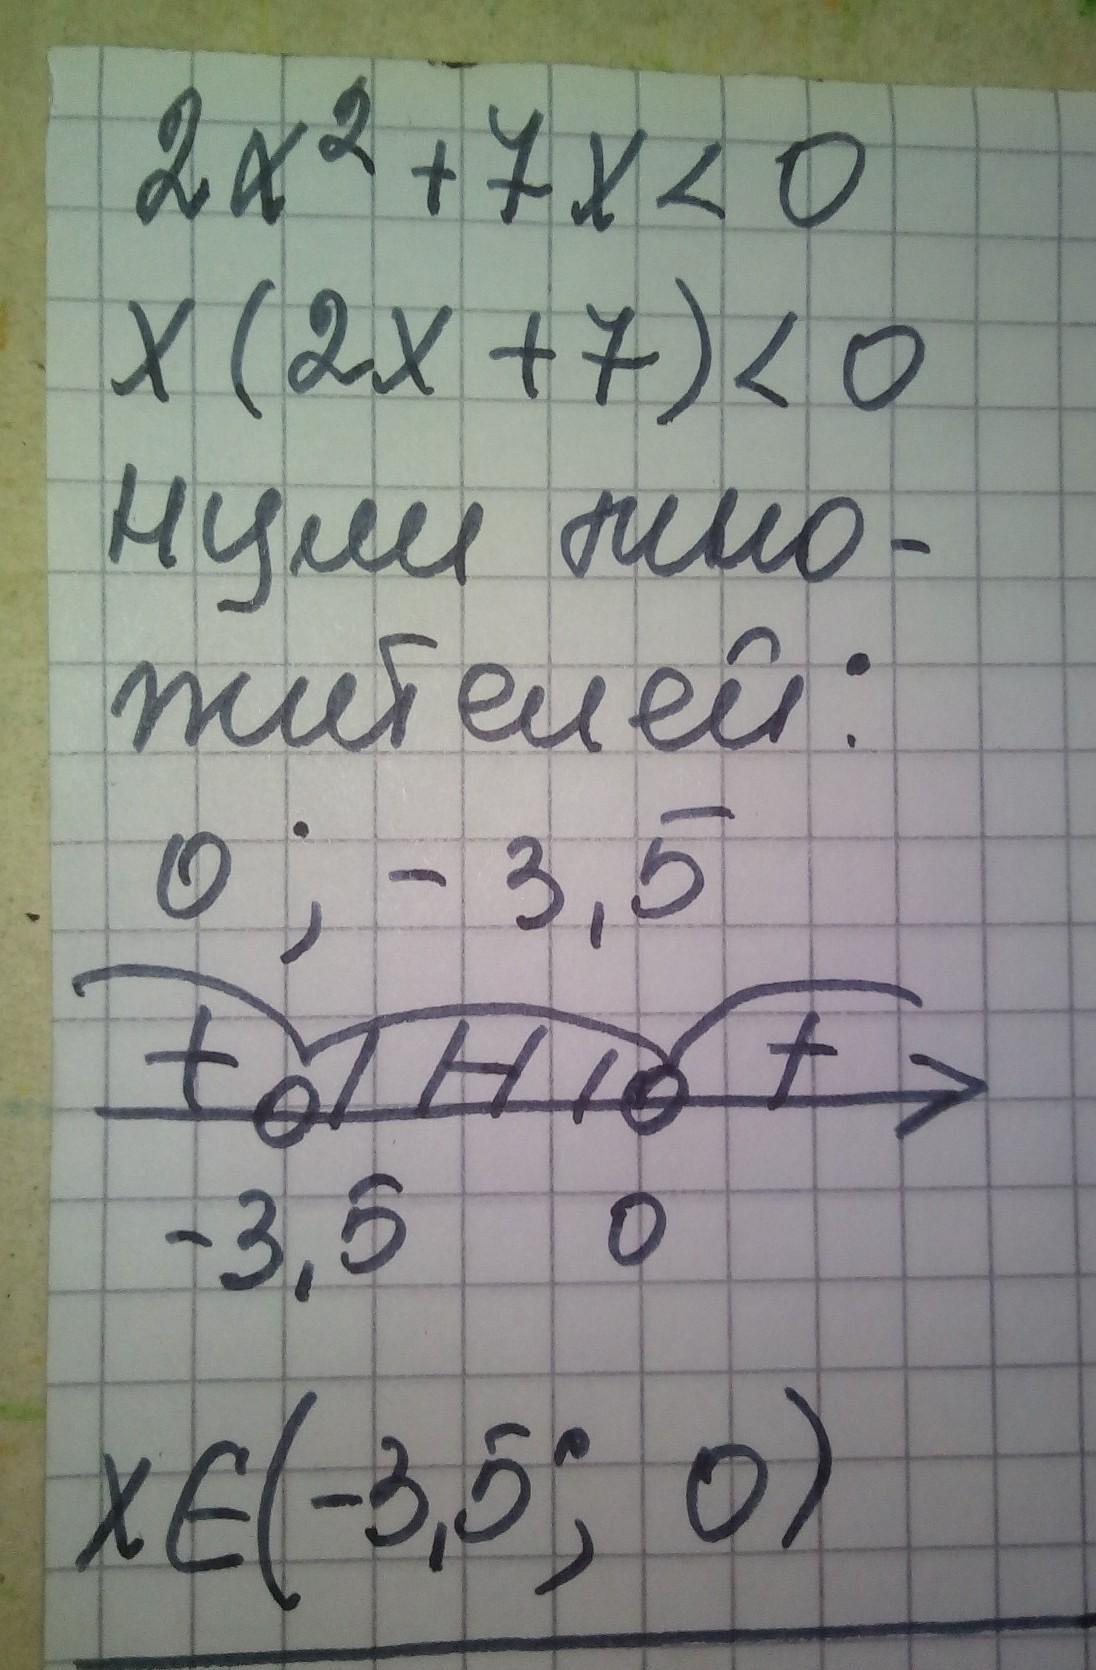 2x² + 7x < 0
x(2x + 7) < 0
нули мно-
жителей:
0; -3,5
+ - +
-3,5 0
x∈(-3,5; 0)